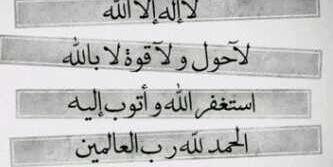 لا إله إلا الله
لا حول ولا قوة لا بالله
استغفر الله و أتوب إليه
الحمد لله رب العالمين